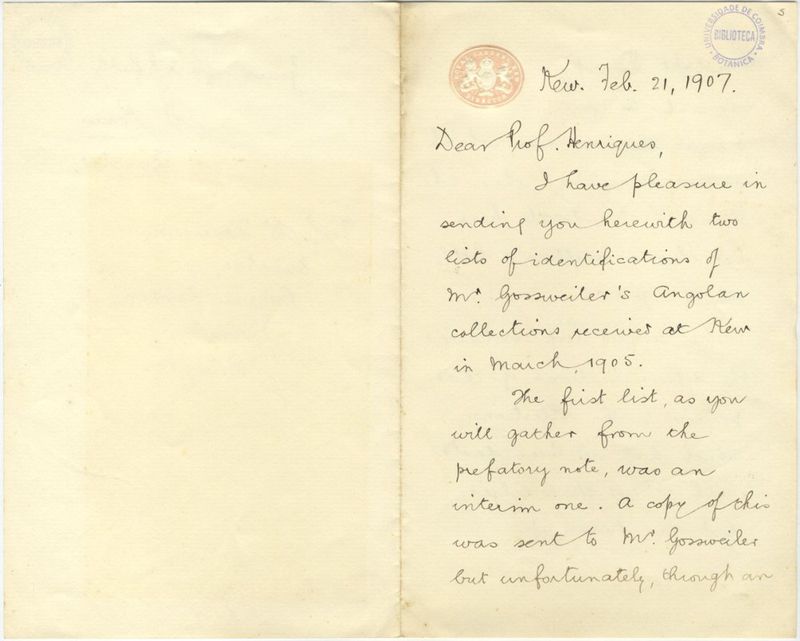 5
UNIVERSIDADE DE COIMBRA
BIBLIOTECA
BOTANICA
Kew. Feb. 21, 1907.
Dear Prof. Henriques,
I have pleasure in
sending you herewith two
lists of identifications of
Mr. Gossweiler's Angolan
collections received at Kew
in March, 1905.
The first list, as you
will gather from the
prefatory note, was an
interim one. A copy of this
was sent to Mr. Gossweiler
but unfortunately, through an